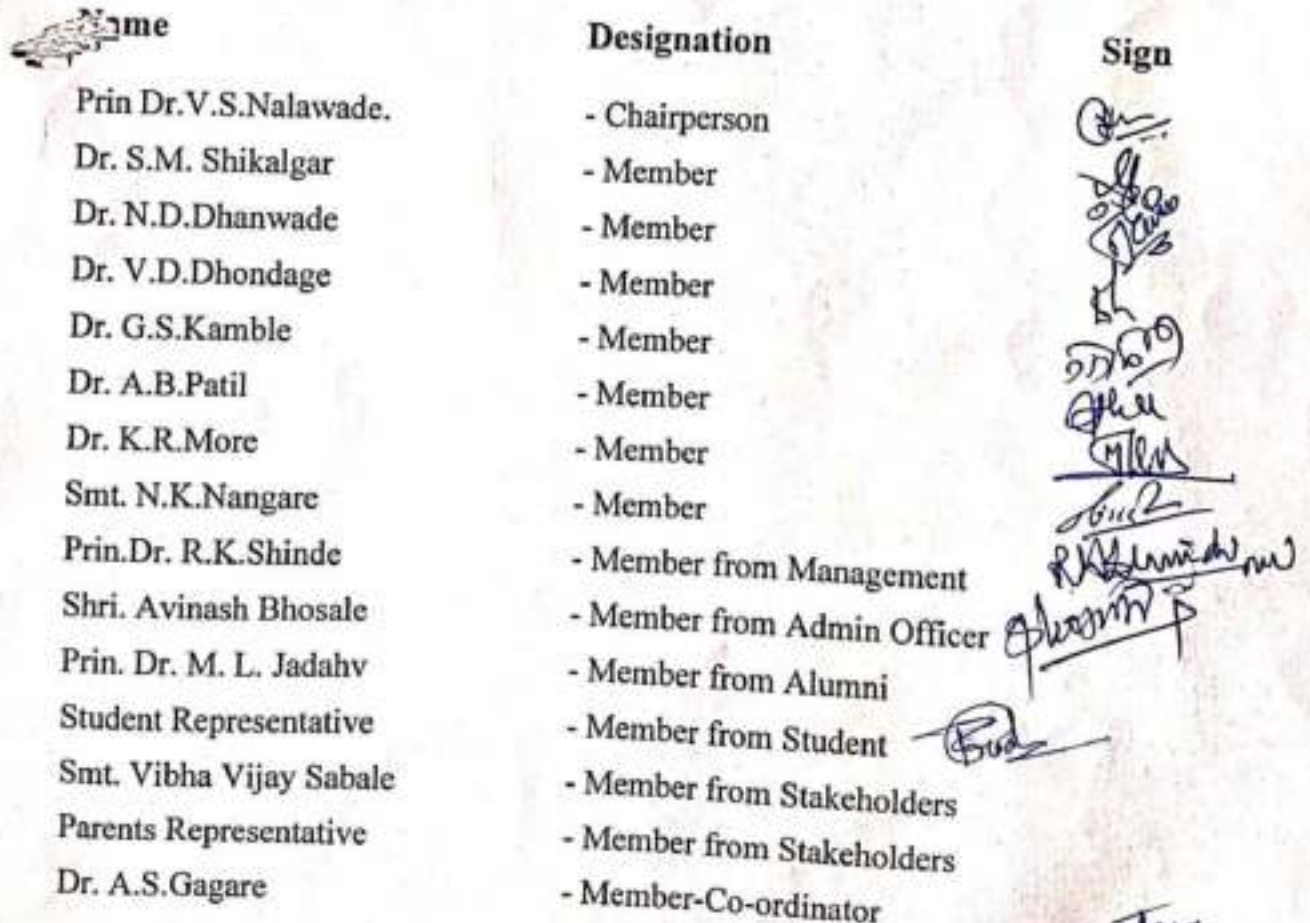 Name Designation Sign
Prin Dr.V.S.Nalawade. - Chairperson
Dr. S.M. Shikalgar - Member
Dr. N.D.Dhanwade - Member
Dr. V.D.Dhondage - Member
Dr. G.S.Kamble - Member
Dr. A.B.Patil - Member
Dr. K.R.More - Member
Smt. N.K.Nangare - Member
Prin.Dr. R.K.Shinde - Member from Management
Shri. Avinash Bhosale - Member from Admin Officer
Prin. Dr. M. L. Jadahv - Member from Alumni
Student Representative - Member from Student
Smt. Vibha Vijay Sabale - Member from Stakeholders
Parents Representative - Member from Stakeholders
Dr. A.S.Gagare - Member-Co-ordinator